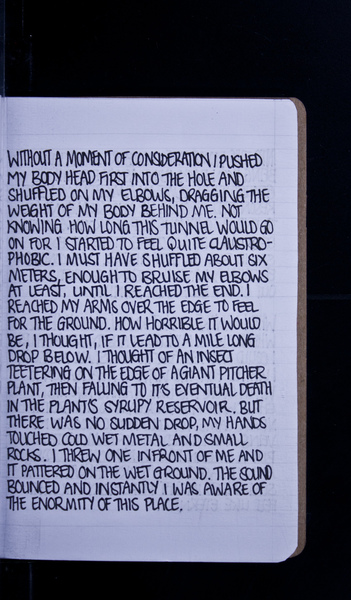 WITHOUT A MOMENT OF CONSIDERATION I PUSHED
MY BODY HEAD FIRST INTO THE HOLE AND
SHUFFLED ON MY ELBOWS, DRAGGING THE
WEIGHT OF MY BODY BEHIND ME. NOT
KNOWING HOW LONG THIS TUNNEL WOULD GO
ON FOR I STARTED TO FEEL QUITE CLAUSTRO-
PHOBIC. I MUST HAVE SHUFFLED ABOUT SIX
METERS, ENOUGH TO BRUISE MY ELBOWS
AT LEAST, UNTIL I REACHED THE END. I
REACHED MY ARMS OVER THE EDGE TO FEEL
FOR THE GROUND. HOW HORRIBLE IT WOULD
BE, I THOUGHT, IF IT LEAD TO A MILE LONG
DROP BELOW. I THOUGHT OF AN INSECT
TEETERING ON THE EDGE OF A GIANT PITCHER
PLANT, THEN FALLING TO IT'S EVENTUAL DEATH
IN THE PLANT'S SYRUPY RESERVOIR. BUT
THERE WAS NO SUDDEN DROP, MY HANDS
TOUCHED COLD WET METAL AND SMALL
ROCKS. I THREW ONE INFRONT OF ME AND
IT PATTERED ON THE WET GROUND. THE SOUND
BOUNCED AND INSTANTLY I WAS AWARE OF
THE ENORMITY OF THIS PLACE.